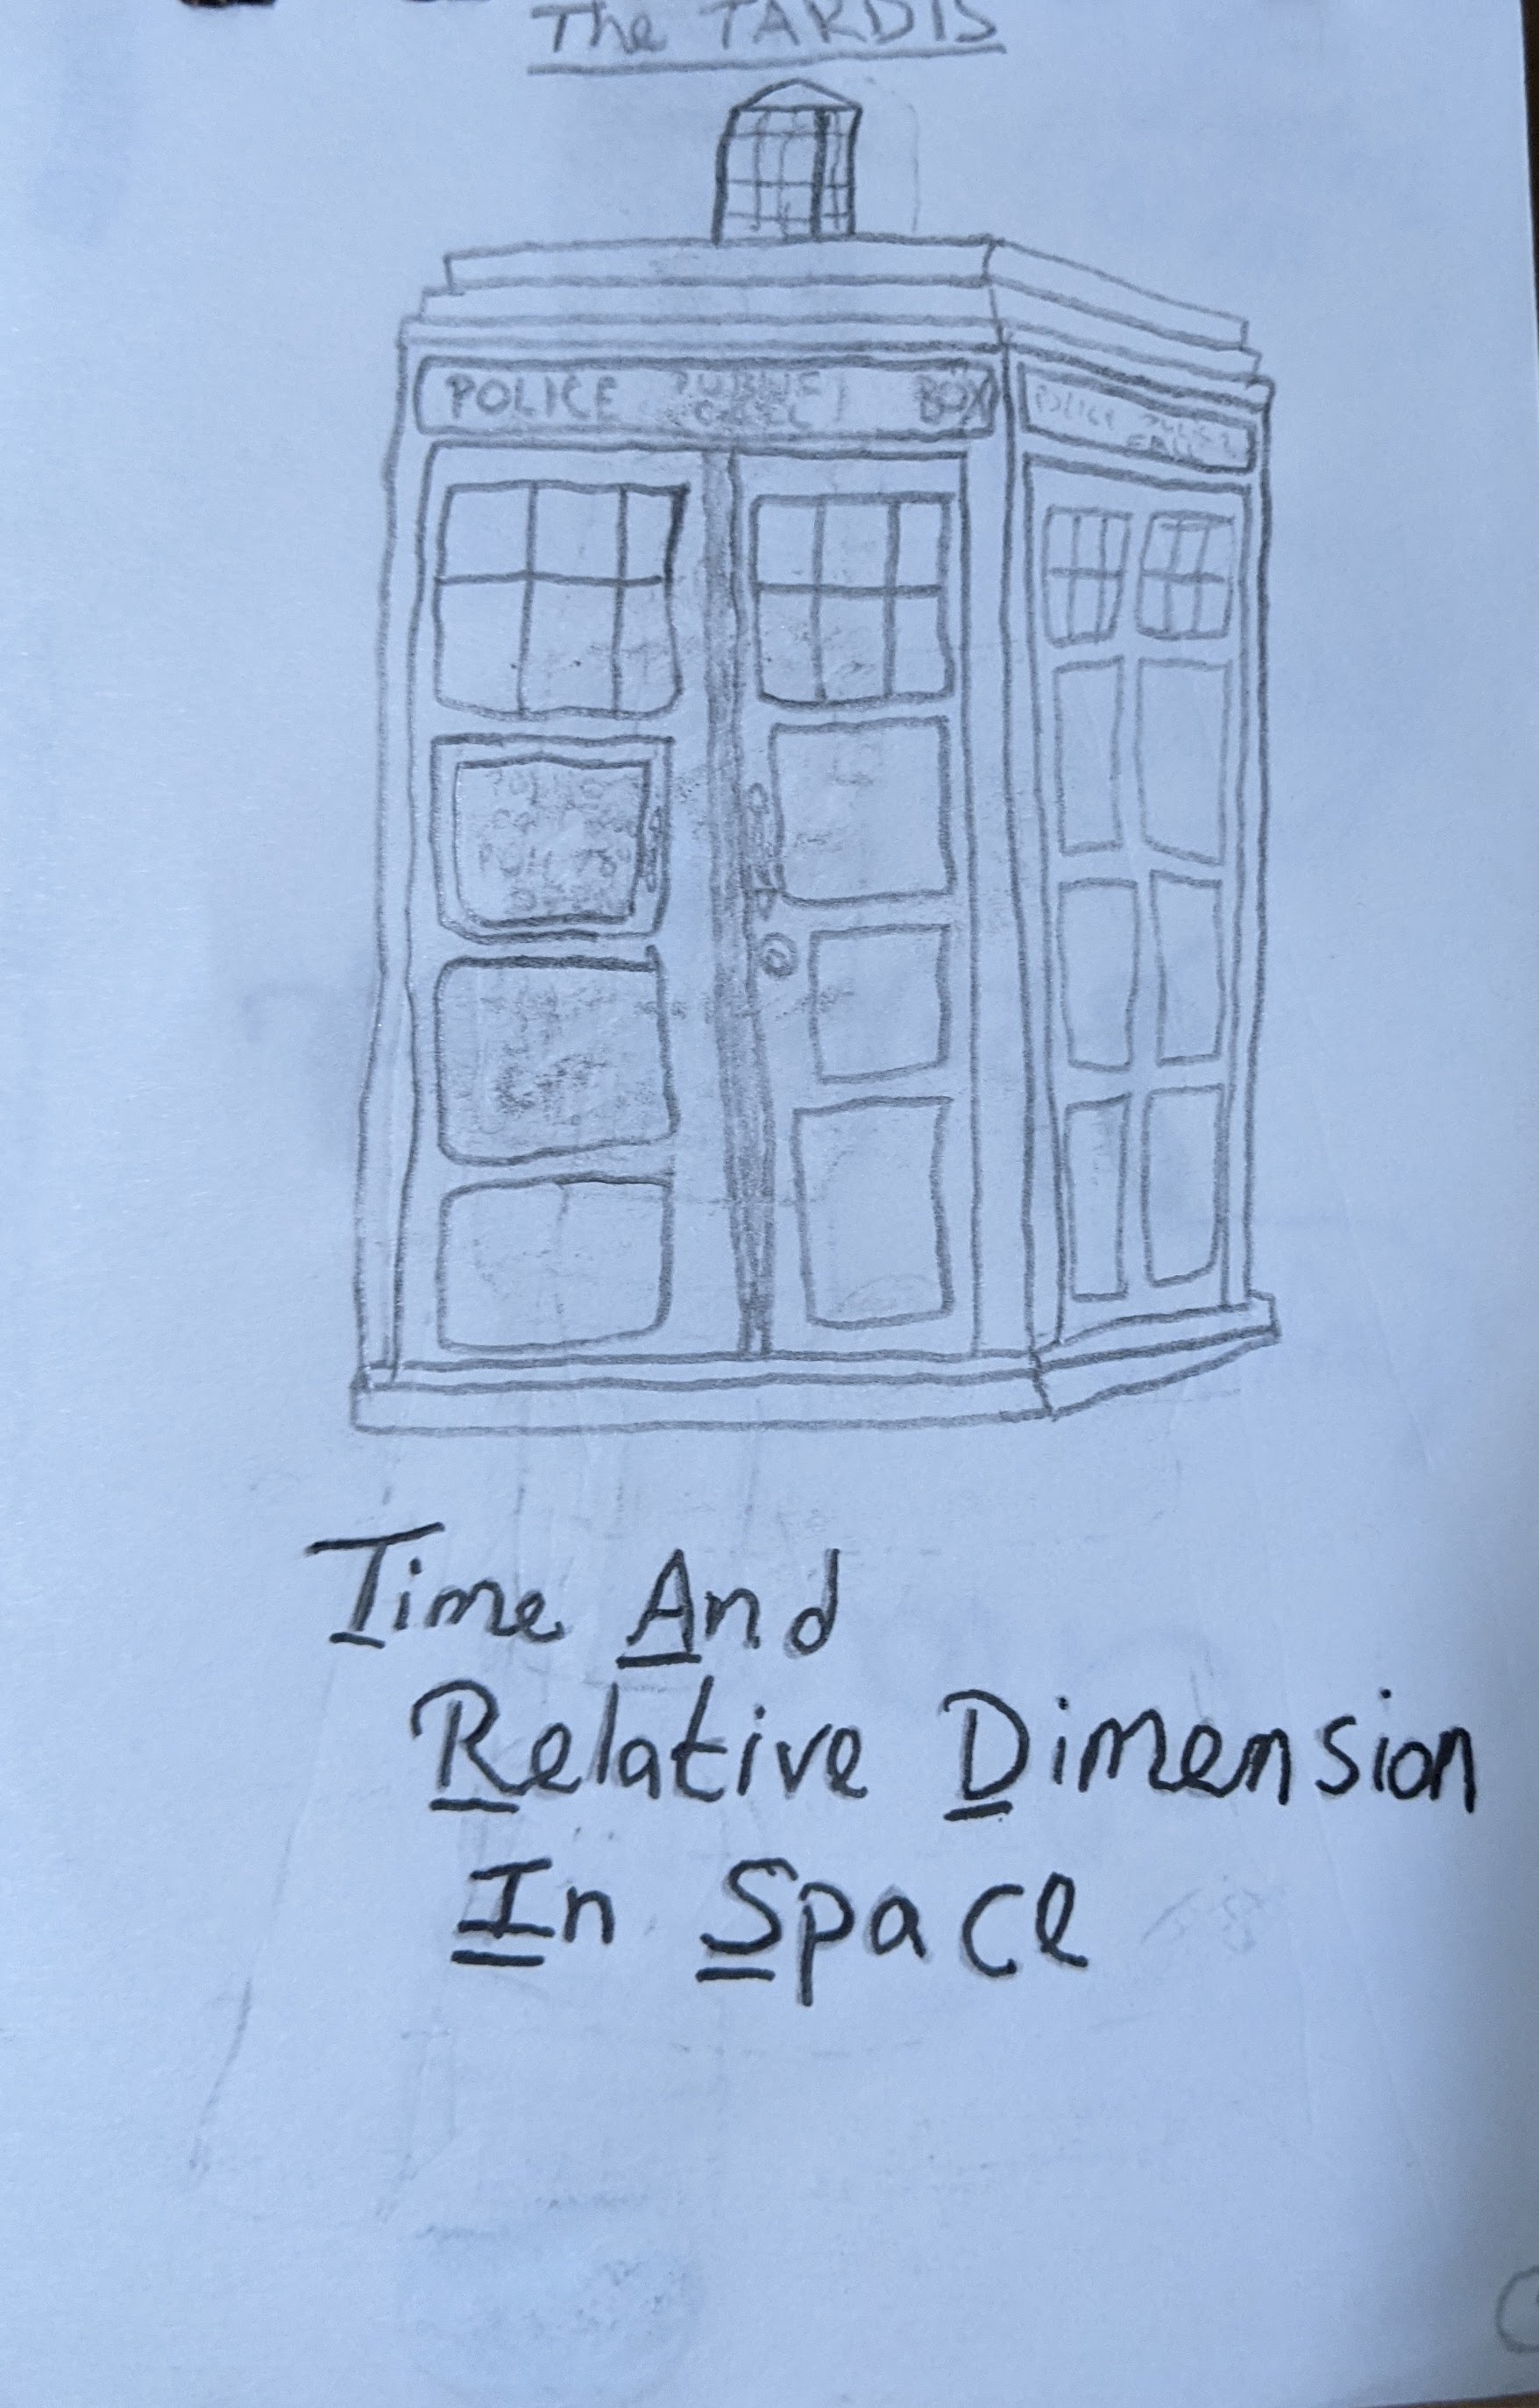 The TARDIS
POLICE PUBLIC CALL BOX
POLICE PUBLIC CALL
PULL TO
Time And
Relative Dimension
In Space